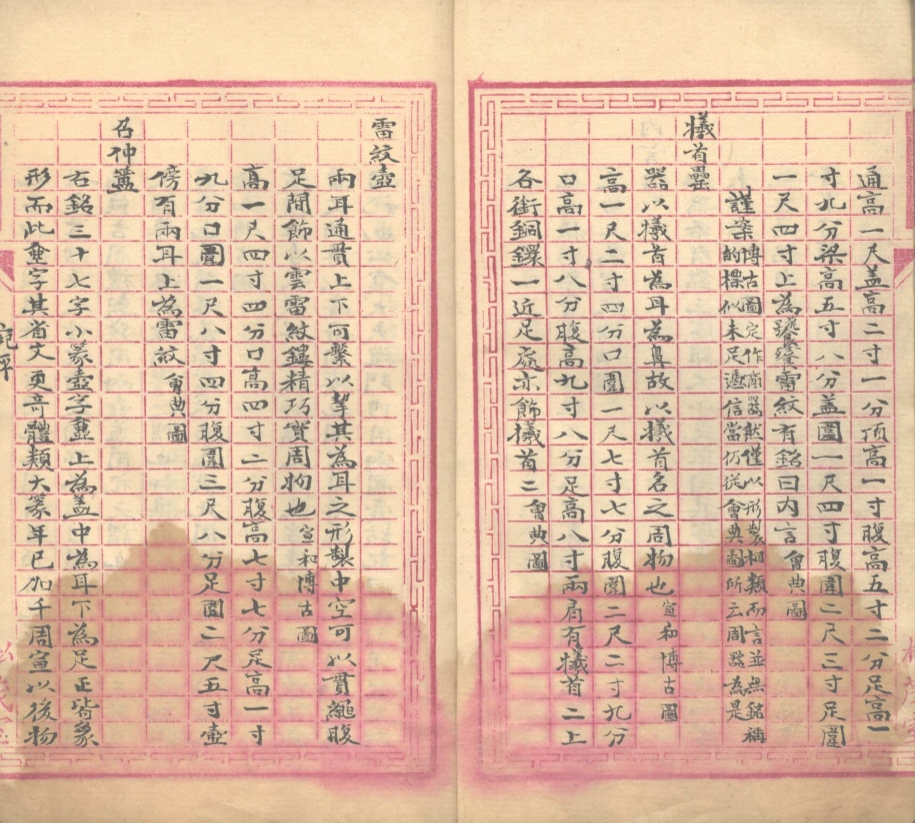 通高一尺蓋高二寸一分頂高一寸腹高五寸二分足高一
寸九分梁高五寸八分蓋圍一尺四寸腹圍二尺三寸足圍
一尺四寸上為饕餮雷紋有銘曰內言會典圖
謹案博古圖定作商器然僅以形製相類而言並無銘稱
的標似未足遽信當仍從會典圖所云周器為是
犧首罍
器以犧首為耳為鼻故以犧首名之周物也宣和博古圖
高一尺二寸四分口圍一尺七寸七分腹圍二尺二寸九分
口高一寸八分腹高九寸八分足高八寸兩肩有犧首二上
各銜銅鐶一近足處亦飾犧首二會典圖
雷紋壺
兩耳通貫上下可繫以挈其為耳之形製中空可以貫繩腹
足間飾以雲雷紋鏤精巧實周物也宣和博古圖
高一尺四寸四分口高四寸二分腹高七寸七分足高一寸
九分口圍一尺八寸四分腹圍三尺八分足圍二尺五寸壺
傍有兩耳上為雷紋會典圖
召仲簠
右銘三十七字小篆壺字畫上為蓋中為耳下為足正皆象
形而此壺字其省文更奇體類大篆年已加千周宣以後物